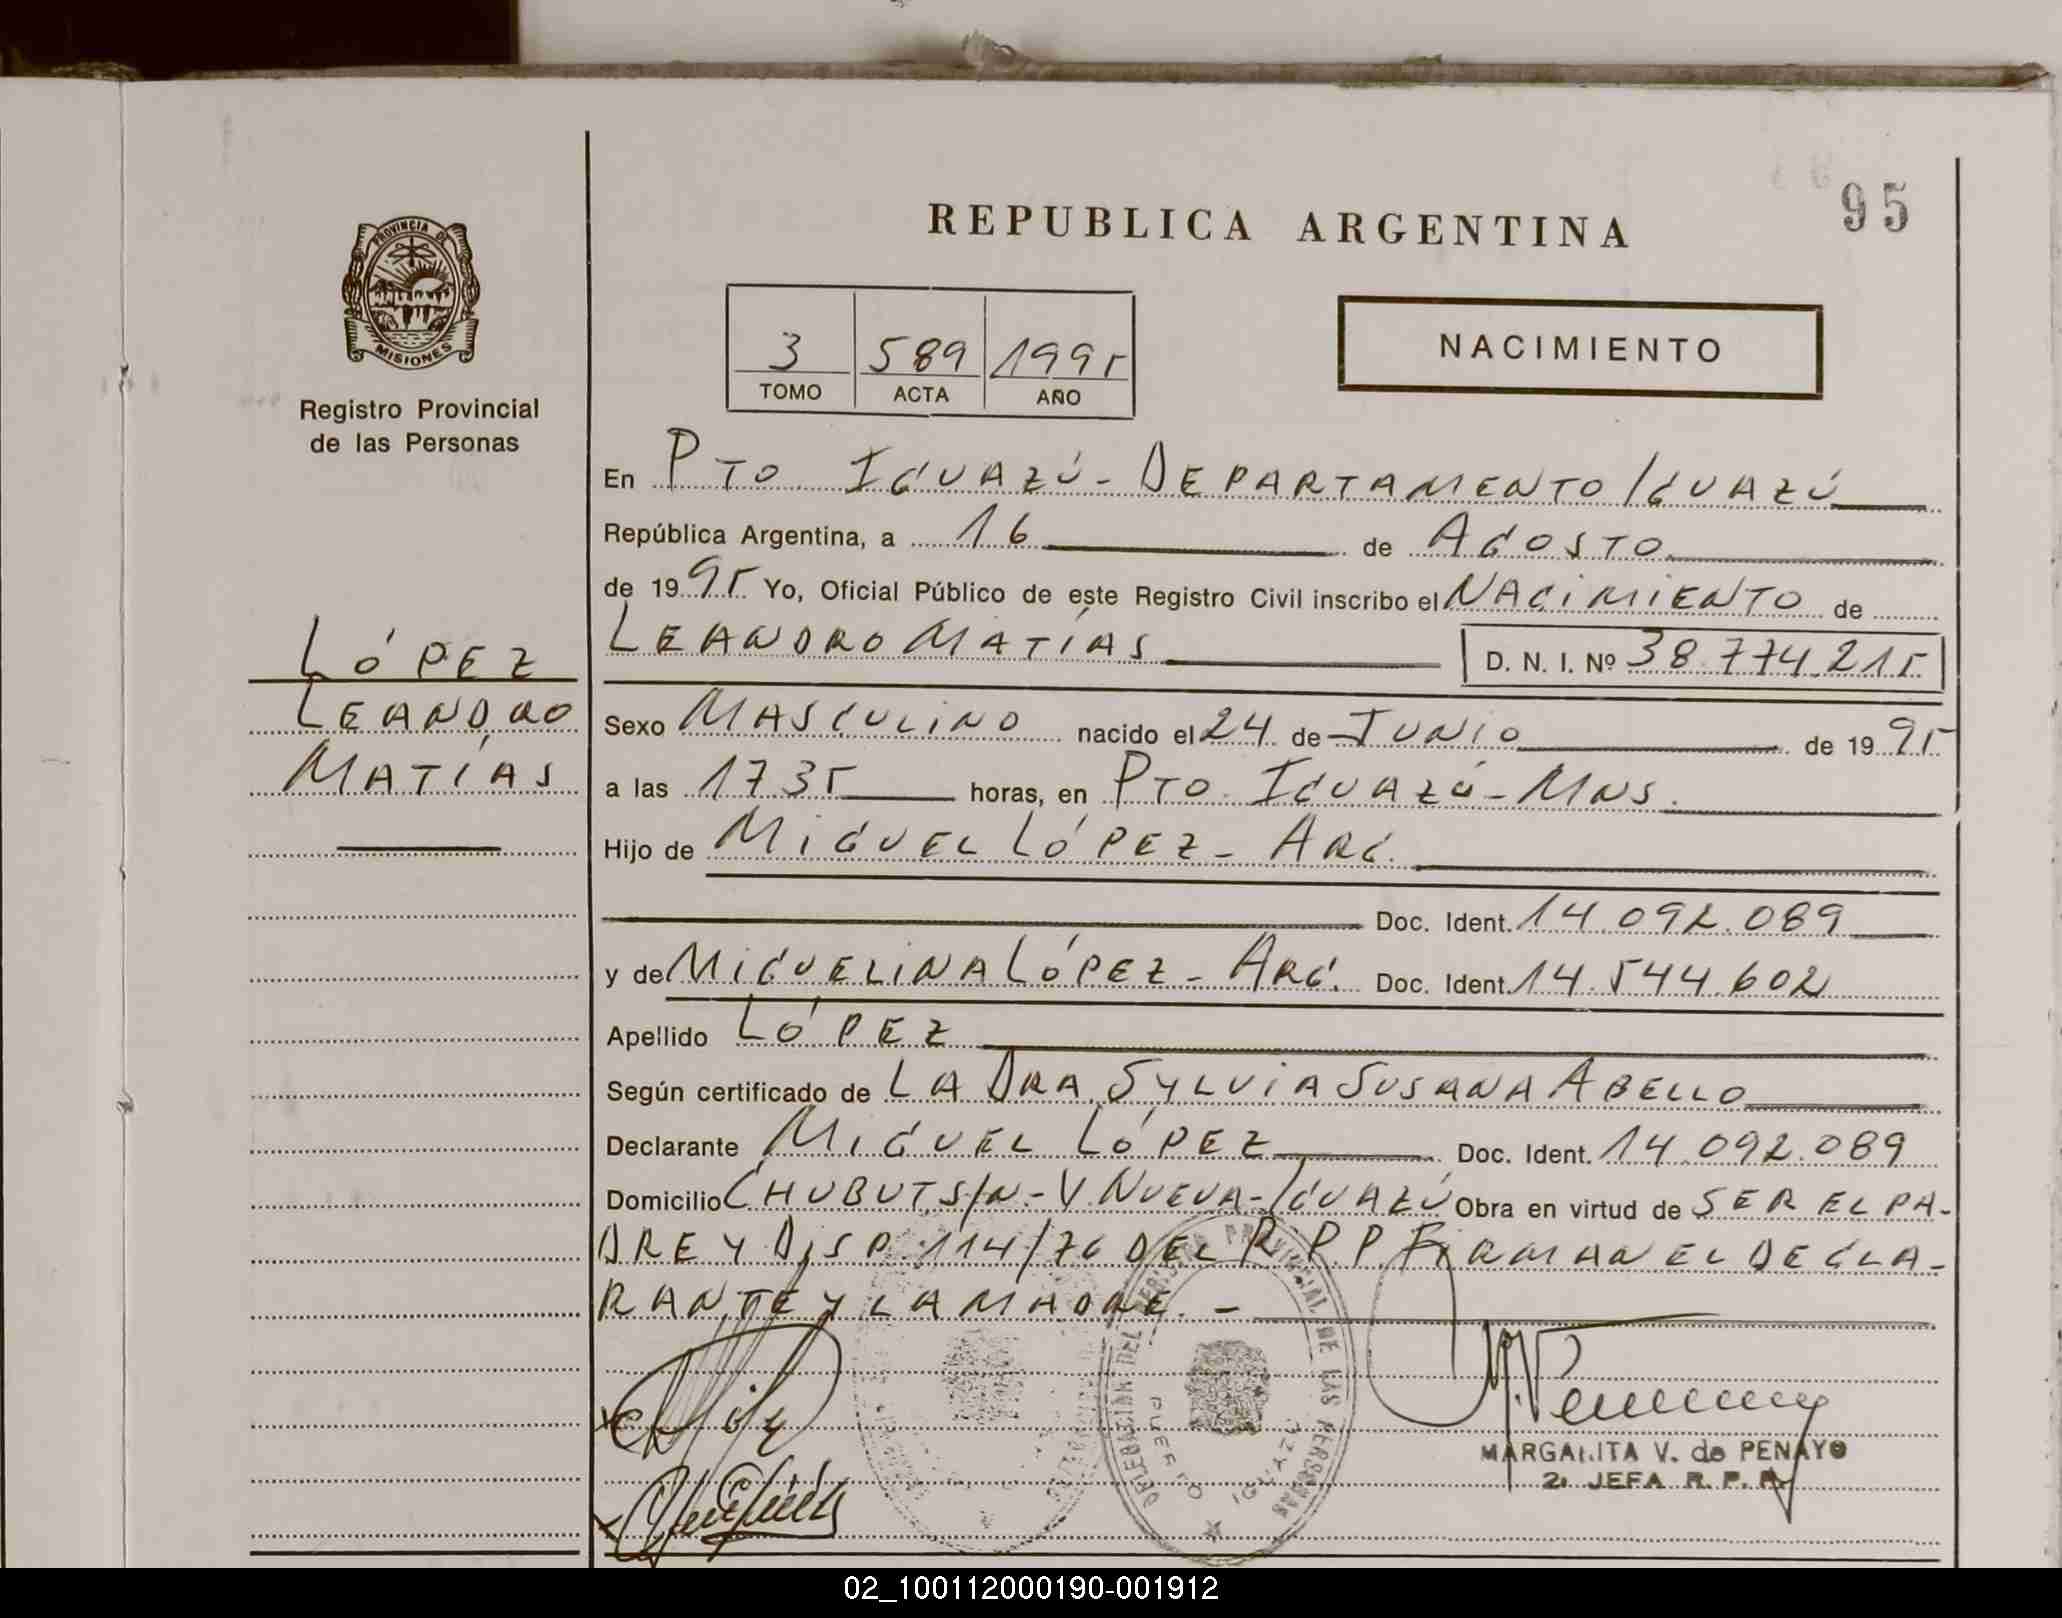 95
REPUBLICA ARGENTINA
PROVINCIA DE
MISIONES
Registro Provincial
de las Personas
3 589 1995
TOMO ACTA AÑO
NACIMIENTO
En PTO. IGUAZÚ - DEPARTAMENTO IGUAZÚ
República Argentina, a 16 de AGOSTO
de 1995 Yo, Oficial Público de este Registro Civil inscribo el NACIMIENTO de
LEANDRO MATÍAS D. N. I. Nº 38.774.215
LÓPEZ
LEANDRO
MATÍAS
Sexo MASCULINO nacido el 24 de JUNIO de 1995
a las 1735 horas, en PTO. IGUAZÚ - MNS.
Hijo de MIGUEL LÓPEZ - ARG.
Doc. Ident. 14.092.089
y de MIGUELINA LÓPEZ - ARG. Doc. Ident. 14.544.602
Apellido LÓPEZ
Según certificado de LA DRA. SYLVIA SUSANA ABELLO
Declarante MIGUEL LÓPEZ Doc. Ident. 14.092.089
Domicilio CHUBUT S/N. - V. NUEVA - IGUAZÚ Obra en virtud de SER EL PA-
DRE Y DISP. 114/76 DEL R.P.P. FIRMAN EL DECLA-
RANTE Y LA MADRE. -
DELEGACION DEL REGISTRO PROVINCIAL DE LAS PERSONAS
PUERTO IGUAZU
MARGARITA V. de PENAYO
2. JEFA R. P. P.
02_100112000190-001912